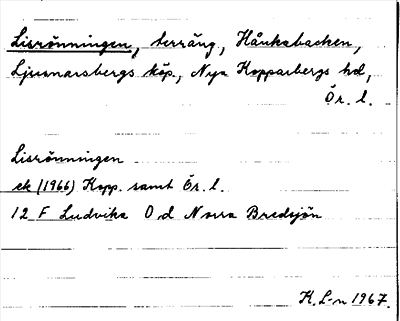 Lisrönningen, terräng, Hånkabacken,
Ljusnarsbergs köp., Nya Kopparbergs hd,
Ör. l.
Lisrönningen
ek (1966) Kopp. samt Ör. l.
12 F Ludvika O d Norra Bredsjön
K. L-n 1967.